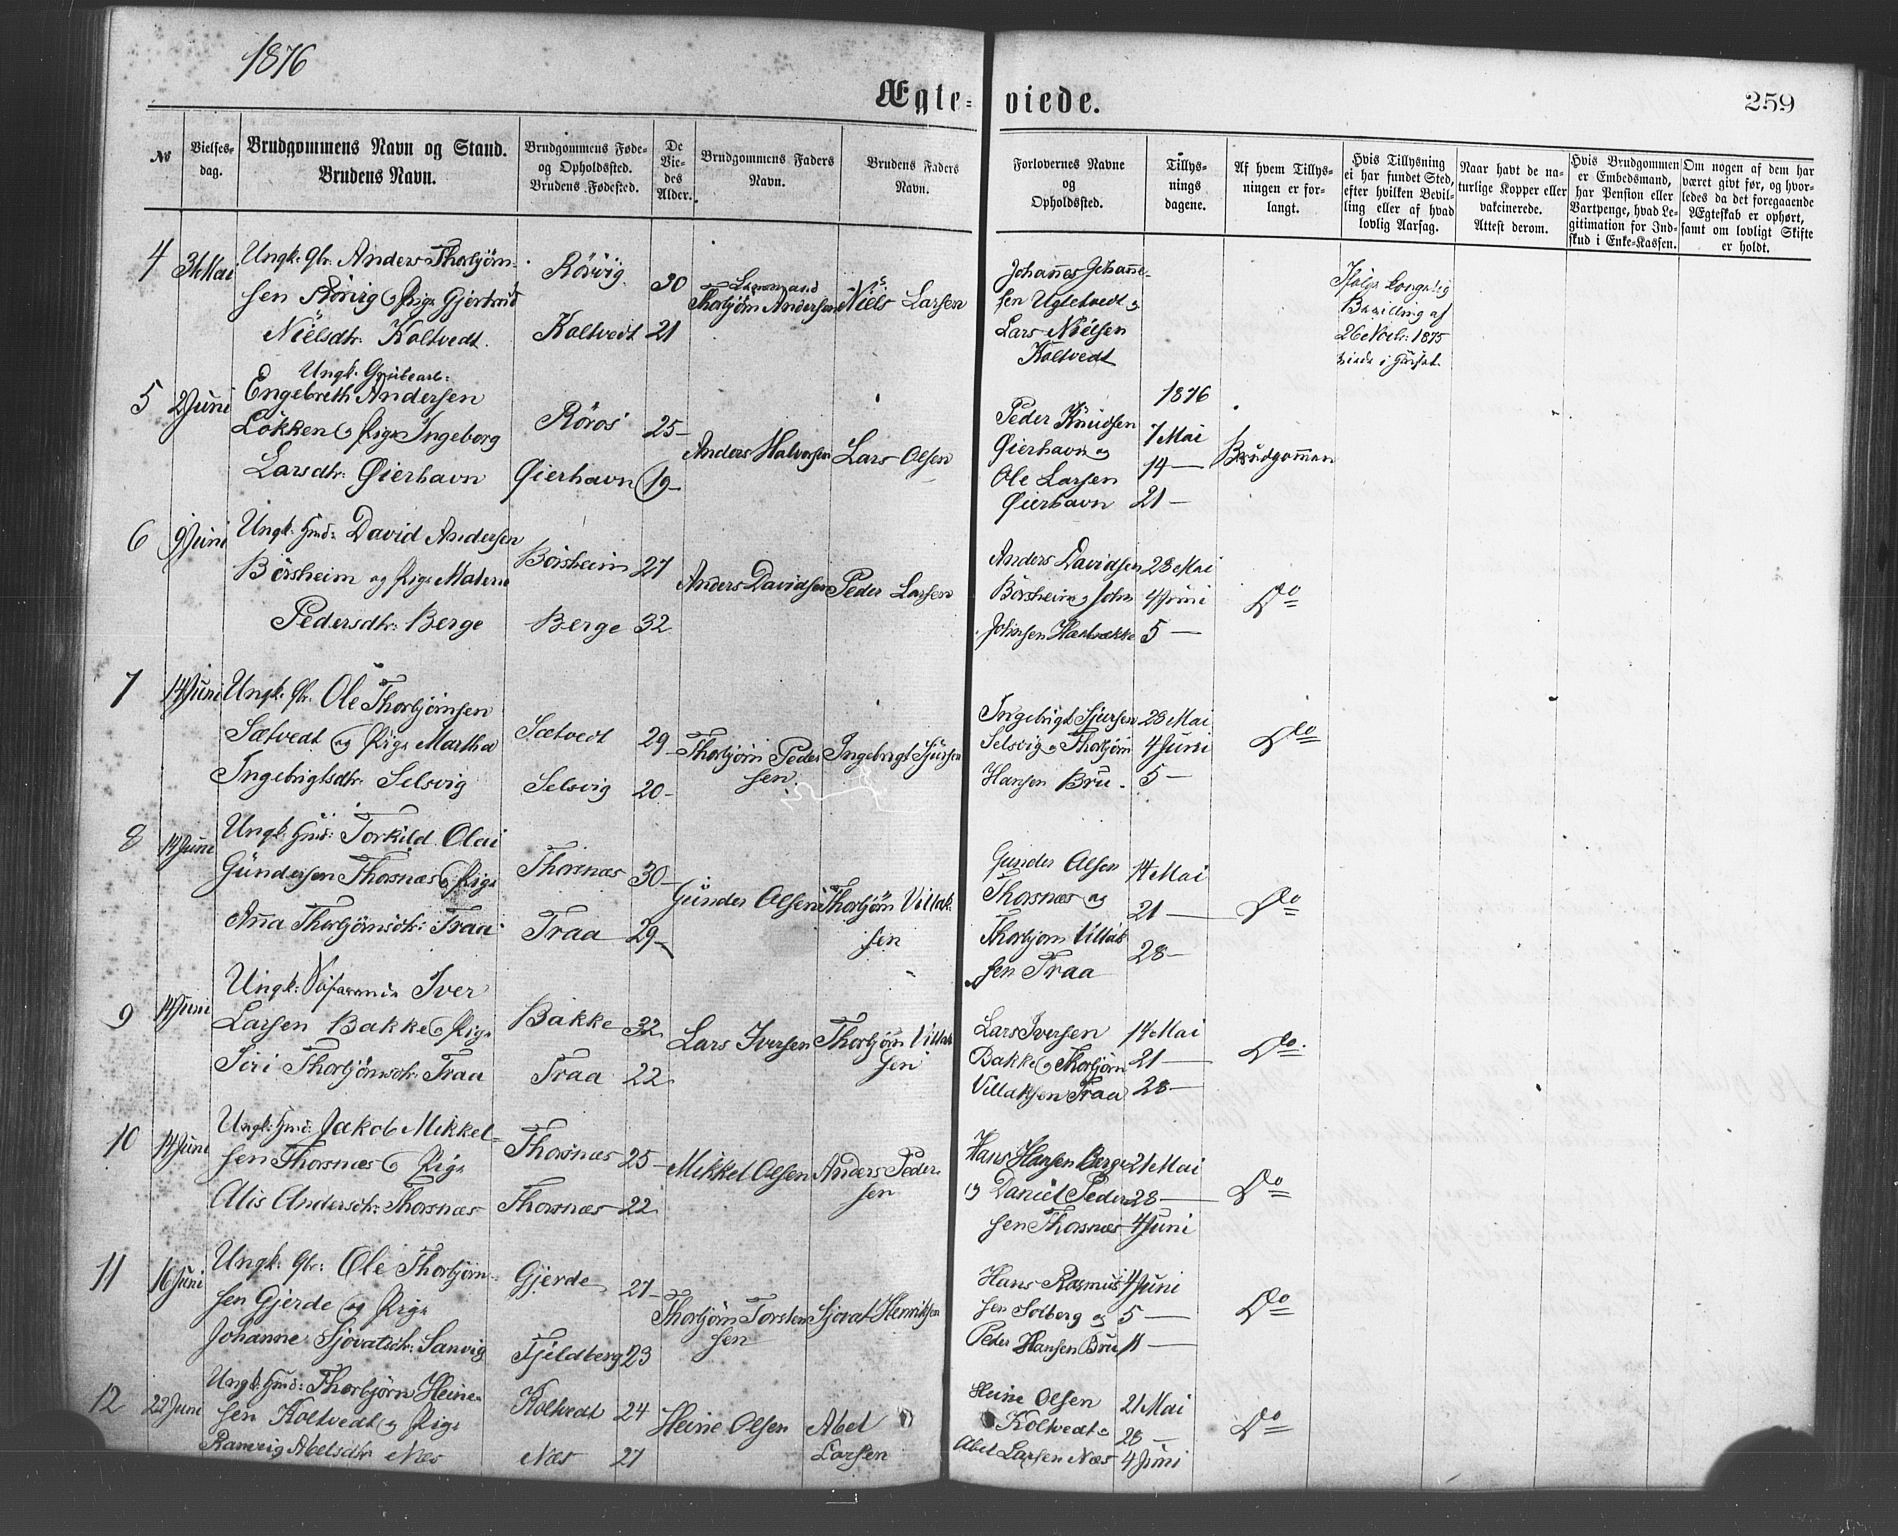 1876
Ægte-viede.
259
No
Vielses-
dag.
Brudgommens Navn og Stand.
Brudens Navn.
Brudgommens Føde-
og Opholdssted.
Brudens Fødested.
De
Vie-
des
Alder.
Brudgommens Faders
Navn.
Brudens Faders
Navn.
Forlovernes Navne
og
Opholdssted.
Tillys-
nings
dagene.
Af hvem Tillys-
ningen er for-
langt.
Hvis Tillysning
ei har fundet Sted,
efter hvilken Bevil-
ling eller af hvad
lovlig Aarsag.
Naar havt de na-
turlige Kopper eller
vakcinerede.
Attest derom.
Hvis Brudgommen
er Embedsmand,
har Pension eller
Vartpenge, hvad Le-
gitimation for Ind-
skud i Enke-Kassen.
Om nogen af dem har
været givt før, og hvor-
ledes da det foregaaende
Ægteskab er ophørt,
samt om lovligt Skifte
er holdt.
4
Mai
Ungk. Gbr. Anders Thorbjørn-
sen Rørvig og Pige Gjertrud
Nielsdtr. Koltvedt.
Rørvig
30
Koltvedt
21
Lensmand
Thorbjørn Andersen
Niels Larsen
Johannes Johanne-
sen Ugletvedt og
Lars Nielsen
Koltvedt
Ifølge Kongelig
Bevilling af
26 Novbr. 1875
5
2 Juni
Ungk.
Engebreth Andersen
Løkken og Pige Ingeborg
Larsdtr. Øierhavn
Røros
25
Øierhavn
19
Anders Halvorsen
Lars Olsen
Peder Knudsen
Øierhavn og
Ole Larsen
Øierhavn
1876
7 Mai
14 —
21 —
Brudgommen
6
9 Juni
Ungk. Gmd: David Andersen
Børsheim og Pige Malene
Pedersdtr. Berge
Børsheim
27
Berge
32
Anders Davidsen
Peder Larsen
Anders Davidsen
Børsheim og John
Johnsen
28 Mai
4 Juni
5 —
Do
7
14 Juni
Ungk. Gbr. Ole Thorbjørnsen
Sætvedt og Pige Martha
Ingebrigtsdtr. Selsvig
Sætvedt
29
Selsvig
20
Thorbjørn Peder
sen
Ingebrigt Sjursen
Ingebrigt Sjursen
Selsvig og Thorbjørn
Hansen Bru.
28 Mai
4 Juni
5 —
Do
8
14 Juni
Ungk. Gmd: Torkild Olai
Gundersen Thorsnæs og Pige
Anna Thorbjørnsdtr. Traa
Thorsnæs
30
Traa
29
Gunder Olsen
Thorbjørn Villak-
sen
Gunder Olsen
Thorsnæs og
Thorbjørn Villak
sen Traa
14 Mai
21 —
28 —
Do
9
14 Juni
Ungk: Iver
Larsen Bakke og Pige
Siri Thorbjørnsdtr. Traa
Bakke
32
Traa
22
Lars Iversen
Thorbjørn Villak
sen
Lars Iversen
Bakke og Thorbjørn
Villaksen Traa
14 Mai
21 —
28 —
Do
10
14 Juni
Ungk: Gmd: Jakob Mikkel-
sen Thorsnæs og Pige
Alis Andersdtr. Thorsnæs
Thorsnæs
25
Thorsnæs
22
Mikkel Olsen
Anders Peder
sen
Hans Hansen Berge
og Daniel Peder
sen Thorsnæs
21 Mai
28 —
4 Juni
Do
11
16 Juni
Ungk. Gbr: Ole Thorbjørn-
sen Gjerde og Pige
Johanne Sjovatsdtr. Sanvig
Gjerde
27
Fjeldberg
23
Thorbjørn Torsten
sen
Sjovat Henriksen
Hans Rasmus
sen Solberg og
Peder Hansen Bru
4 Juni
5 —
11 —
Do
12
22 Juni
Ungk. Gmd: Thorbjørn Heine-
sen Koltvedt og Pige
Ranveig Abelsdtr. Næs
Koltvedt
24
Næs
27
Heine Olsen
Abel
Larsen
Heine Olsen
Koltvedt og
Abel Larsen Næs
21 Mai
28 —
4 Juni
Do